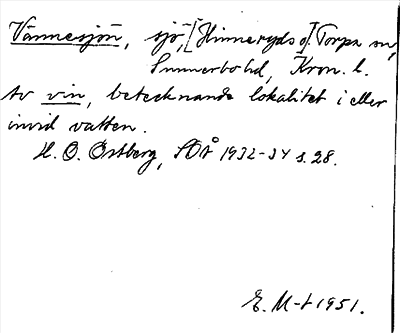 Vännesjön, sjö, [Hinneryds o] Torpa sn,
Sunnerbo hd, Kron. l.
Av vin, betecknande lokalitet i eller
invid vatten.
H. O. Östberg, SOÅ 1932-34 s. 28.
E. M-t 1951.